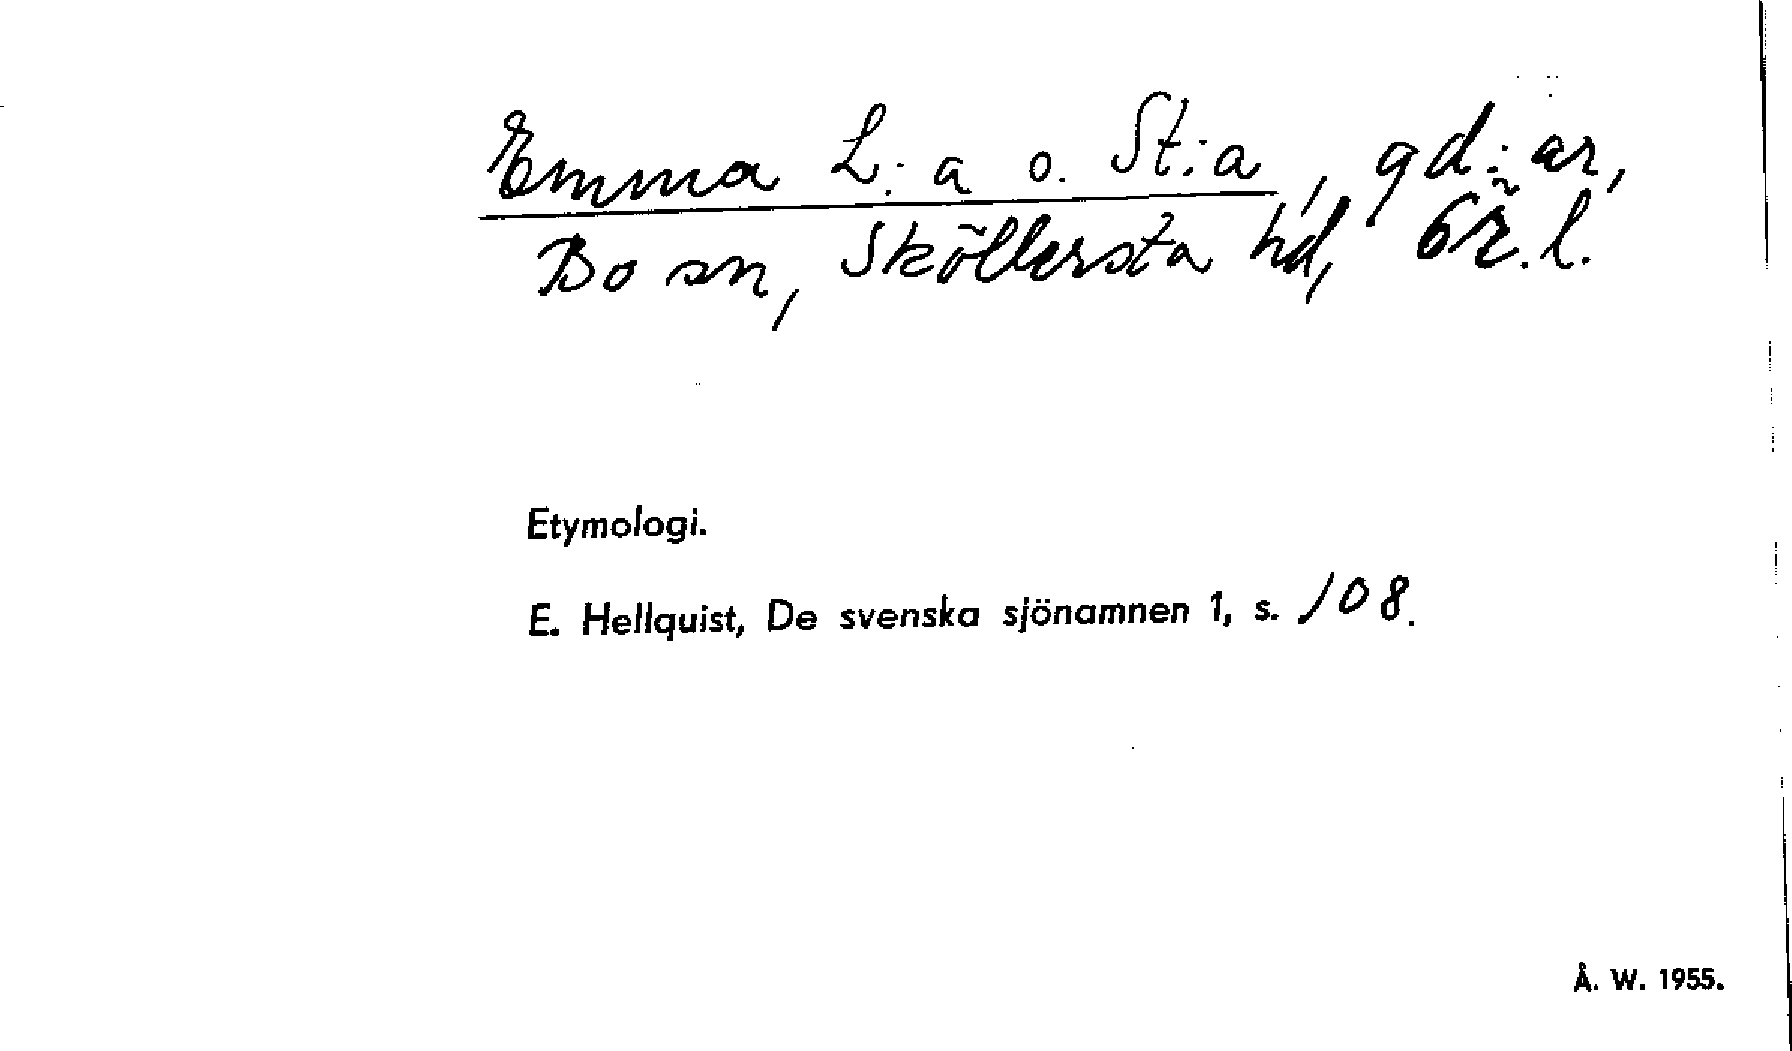 Emma L:a o. St:a, gd:ar,
Bo sn, Sköllersta hd, Ör. l.
Etymologi.
E. Hellquist, De svenska sjönamnen 1, s. 108.
Å. W. 1955.